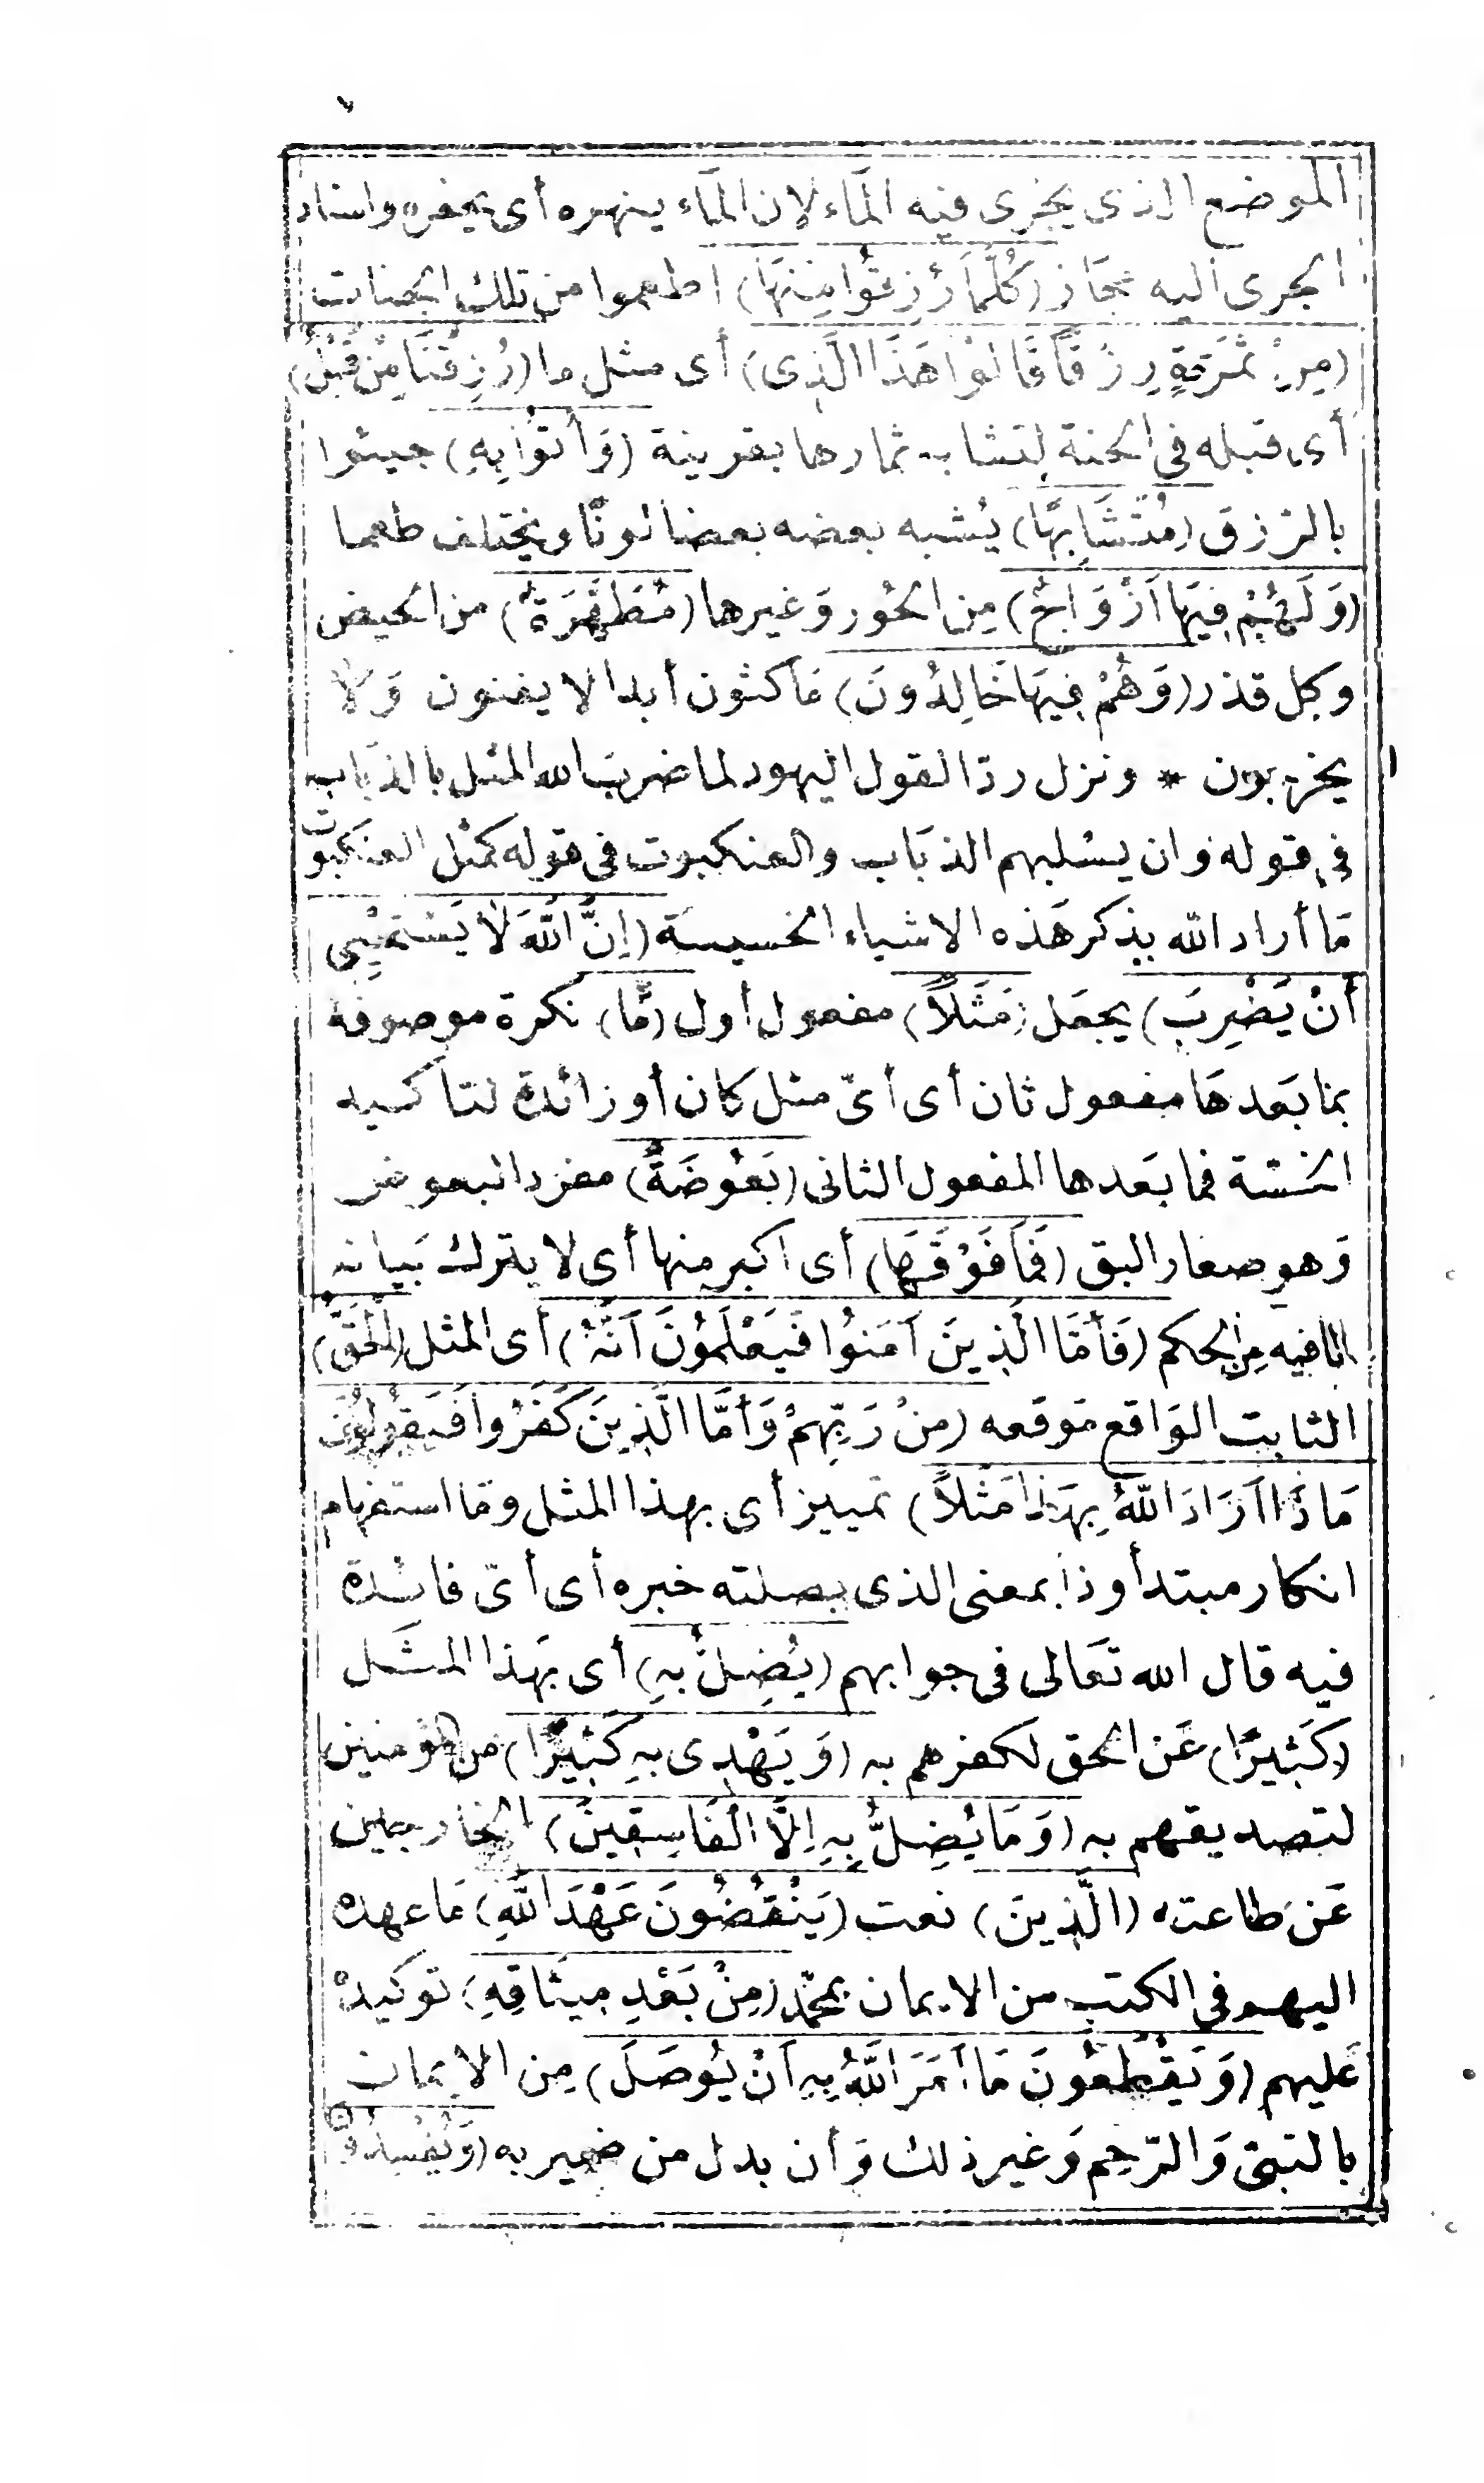 ٧
الموضع الذى يجرى فيه الماء لان الماء ينهره أى يحفره واسناد
الجرى اليه مجاز (كُلَّمَا رُزِقُوا مِنْهَا) اطعموا من تلك الجنات
(مِنْ ثَمَرَةٍ رِزْقًا قَالُوا هَذَا الَّذِى) أى مثل ما (رُزِقْنَا مِنْ قَبْلُ)
أى قبله فى الجنة لتشابه ثمارها بقرينة (وَأُتُوا بِهِ) جيئوا
بالرزق (مُتَشَابِهًا) يُشبه بعضه بعضا لونًا ويختلف طعما
(وَلَهُمْ فِيهَا أَزْوَاجٌ) مِن الحُور وَغيرها (مُطَهَّرَةٌ) من الحيض
وكل قذر (وَهُمْ فِيهَا خَالِدُونَ) مَاكثون أبدا لا يفنون وَلا
يخرجون * ونزل ردّا لقول اليهود لما ضربَ الله المثل بالذبَاب
فى قوله وان يسْلبهم الذبَاب والعنكبوت فى قوله كمثل العنكبوت
مَا أراد الله بذكر هَذه الاشياء الخسيسة (إِنَّ اللَّهَ لَا يَسْتَحْيِى
أَنْ يَضْرِبَ) يجعَل (مَثَلًا) مفعول أول (مَّا) نكرة موصوفة
بما بَعدهَا مفعول ثان أى أىّ مثل كان أو زائدة لتاكيد
الخسّة فما بَعدها المفعول الثانى (بَعُوضَةً) مفرد البعوض
وَهو صغار البق (فَمَا فَوْقَهَا) أى اكبر منها أى لا يترك بَيانه
لما فيه مِن الحكم (فَأَمَّا الَّذِينَ آمَنُوا فَيَعْلَمُونَ أَنَّهُ) أى المثل (الْحَقُّ)
الثابت الوَاقع مَوقعه (مِنْ رَبِّهِمْ وَأَمَّا الَّذِينَ كَفَرُوا فَيَقُولُونَ
مَاذَا أَرَادَ اللَّهُ بِهَذَا مَثَلًا) تمييز أى بهذا المثل وَمَا استفهام
انكار مبتدأ وذا بمعنى الذى بصلته خبره أى أىّ فائدة
فيه قال الله تعَالى فى جوابهم (يُضِلُّ بِهِ) أى بهَذا المثَل
(كَثِيرًا) عَن الحق لكفرهم به (وَيَهْدِى بِهِ كَثِيرًا) من المؤمنين
لتصديقهم به (وَمَا يُضِلُّ بِهِ إِلَّا الْفَاسِقِينَ) الخارجين
عَن طاعته (الَّذِينَ) نعت (يَنْقُضُونَ عَهْدَ اللَّهِ) مَا عهده
اليهم فى الكتب من الايمان بمحمّد (مِنْ بَعْدِ مِيثَاقِهِ) توكيده
عَليهم (وَيَقْطَعُونَ مَا أَمَرَ اللَّهُ بِهِ أَنْ يُوصَلَ) مِن الايمان
بالنبىّ وَالرّحِم وَغير ذلك وَأن بدل من ضمير به (وَيُفْسِدُونَ